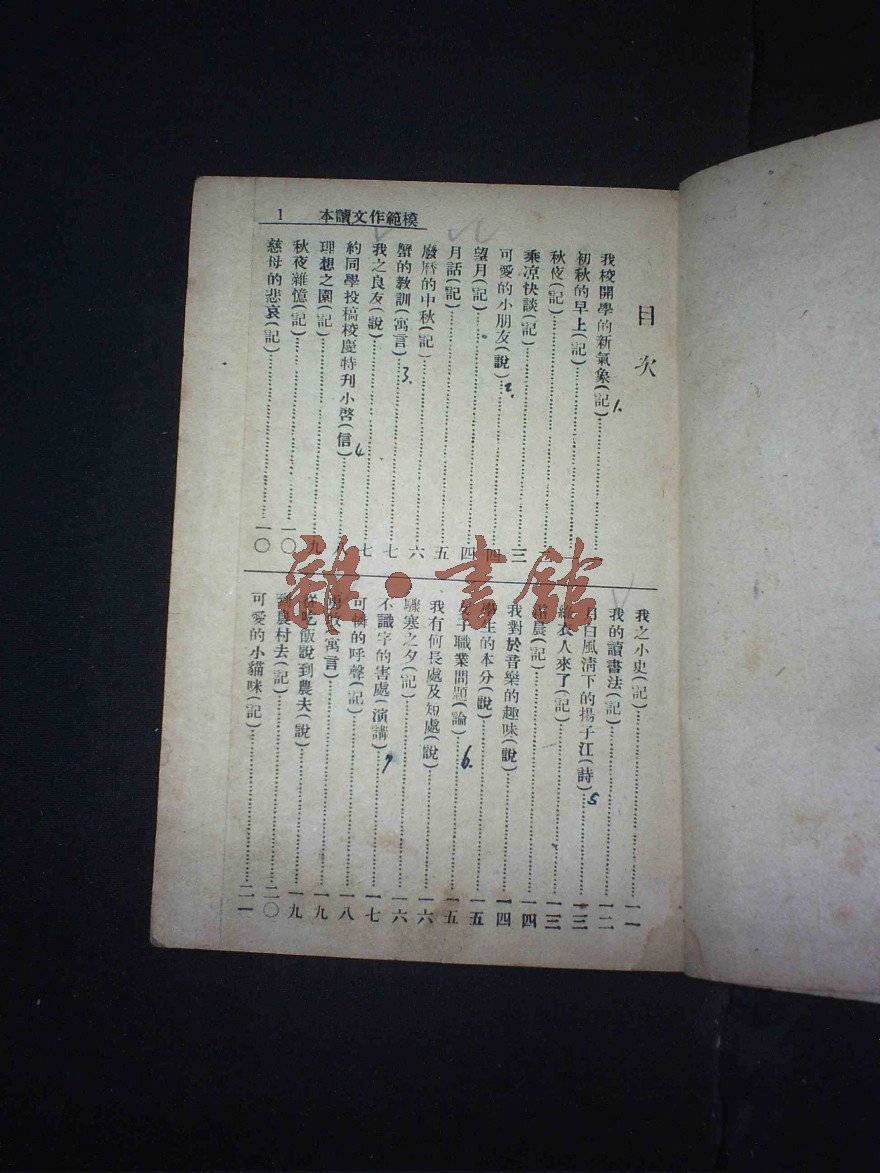 模範作文讀本 1
目次
我校開學的新氣象(記)
1.
初秋的早上(記)
秋夜(記)
乘涼快談(記)……三
可愛的小朋友(說)……四
2.
望月(記)……四
月話(記)……五
廢曆的中秋(記)……六
蟹的教訓(寓言)……七
3.
我之良友(說)……七
約同學投稿校慶特刊小啓(信)……八
4
理想之園(記)……九
秋夜雜憶(記)……一〇
慈母的悲哀(記)……一〇
我之小史(記)……一一
我的讀書法(記)……一二
月白風清下的揚子江(詩)……一三
5
綠衣人來了(記)……一三
晨(記)……一四
我對於音樂的趣味(說)……一四
學生的本分(說)……一五
女子職業問題(論)……一五
6.
我有何長處及短處(說)……一六
驟寒之夕(記)……一六
不識字的害處(演講)……一七
7
可憐的呼聲(記)……一八
(寓言)……一九
從吃飯說到農夫(說)……一九
到農村去(記)……二〇
可愛的小貓咪(記)……二一
雜·書館